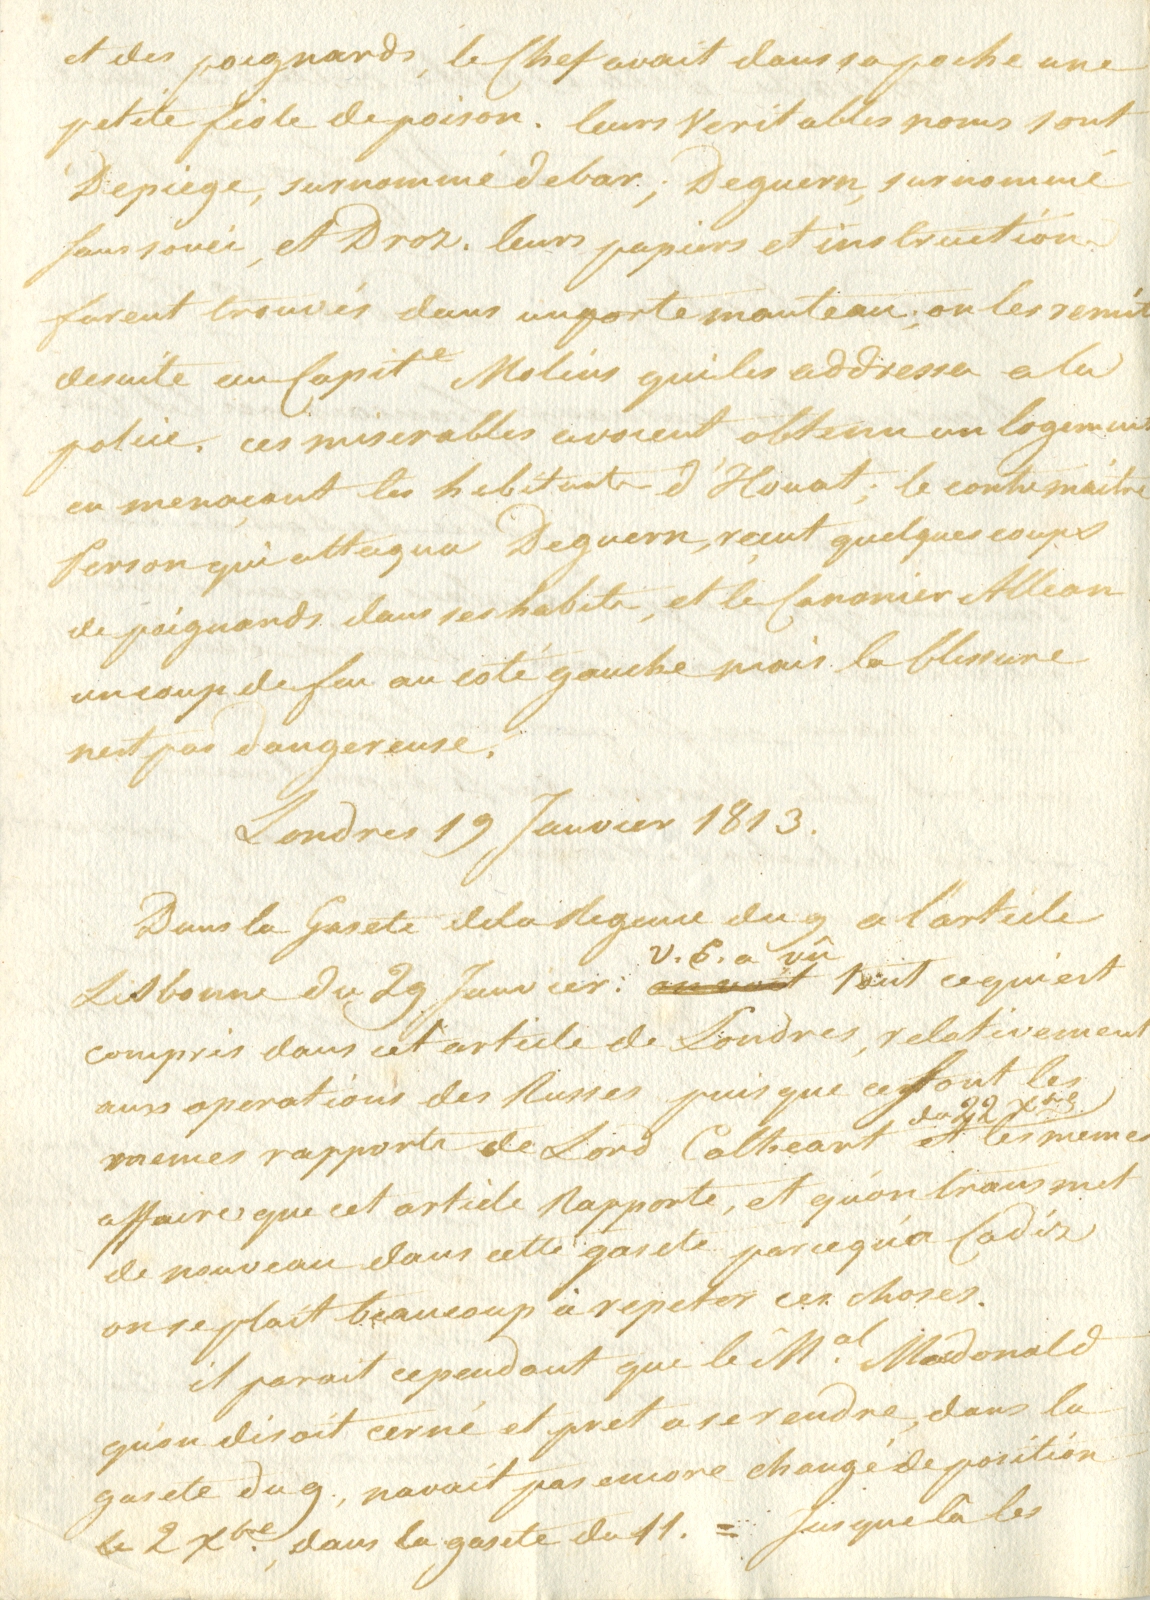 et des poignards, le Chef avait dans sa poche une
petite fiole de poison. leurs veritables noms sont
Depiege, surnommé debar; Deguern, surnommé
sans souci, et Droz. leurs papiers et instruction
furent trouvés dans un porte manteau; on les remit
desuite au Capit.e Molins qui les addressa a la
police. ces miserables avoient obtenu un logement
en menaçant les habitants d'Houat; le contremaitre
Person qui attaqua Deguern, reçut quelques coups
de poignards dans ses habits, et le Canonier Allean
un coup de feu au coté gauche mais la blessure
nest pas dangereuse.
Londres 19 Janvier 1813.
Dans la Gasete dela Regence du 9 a l'article
v. E. a vû
Lisbonne du 29 Janvier: tout ce qui est
compris dans cet article de Londres, relativement
aux operations des Russes puisque ce sont les
du 22 Xbre
memes rapports de Lord Cathcart et les memes
affaires que cet article Rapporte, et qu'on transmet
de nouveau dans cette gasete parcequ'a Cadiz
on se plait beaucoup à repeter ces choses.
il parait cependant que le M.al Macdonald
qu'on disait cerné et pret a se rendre, dans la
gasete du 9., navait pas encore changé de position
le 2 Xbre, dans la gasete du 11. = Jusque là les